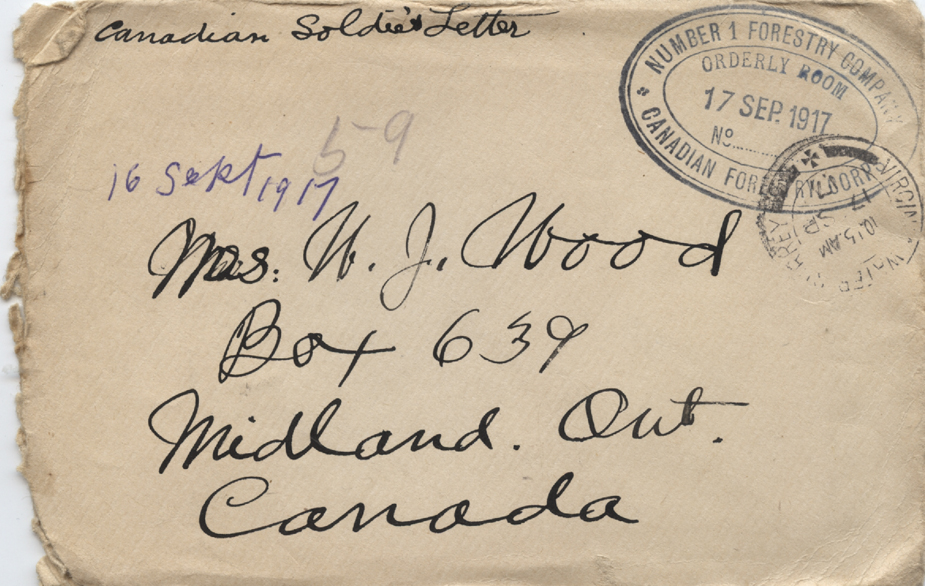 Canadian Soldier's Letter
NUMBER 1 FORESTRY COMPANY
ORDERLY ROOM
17 SEP. 1917
No.
CANADIAN FORESTRY CORPS
VIRGINIA WATER
10.15 AM
17 SP
17
59
16 Sept, 1917
Mrs. W. J. Wood
Box 639
Midland. Ont.
Canada